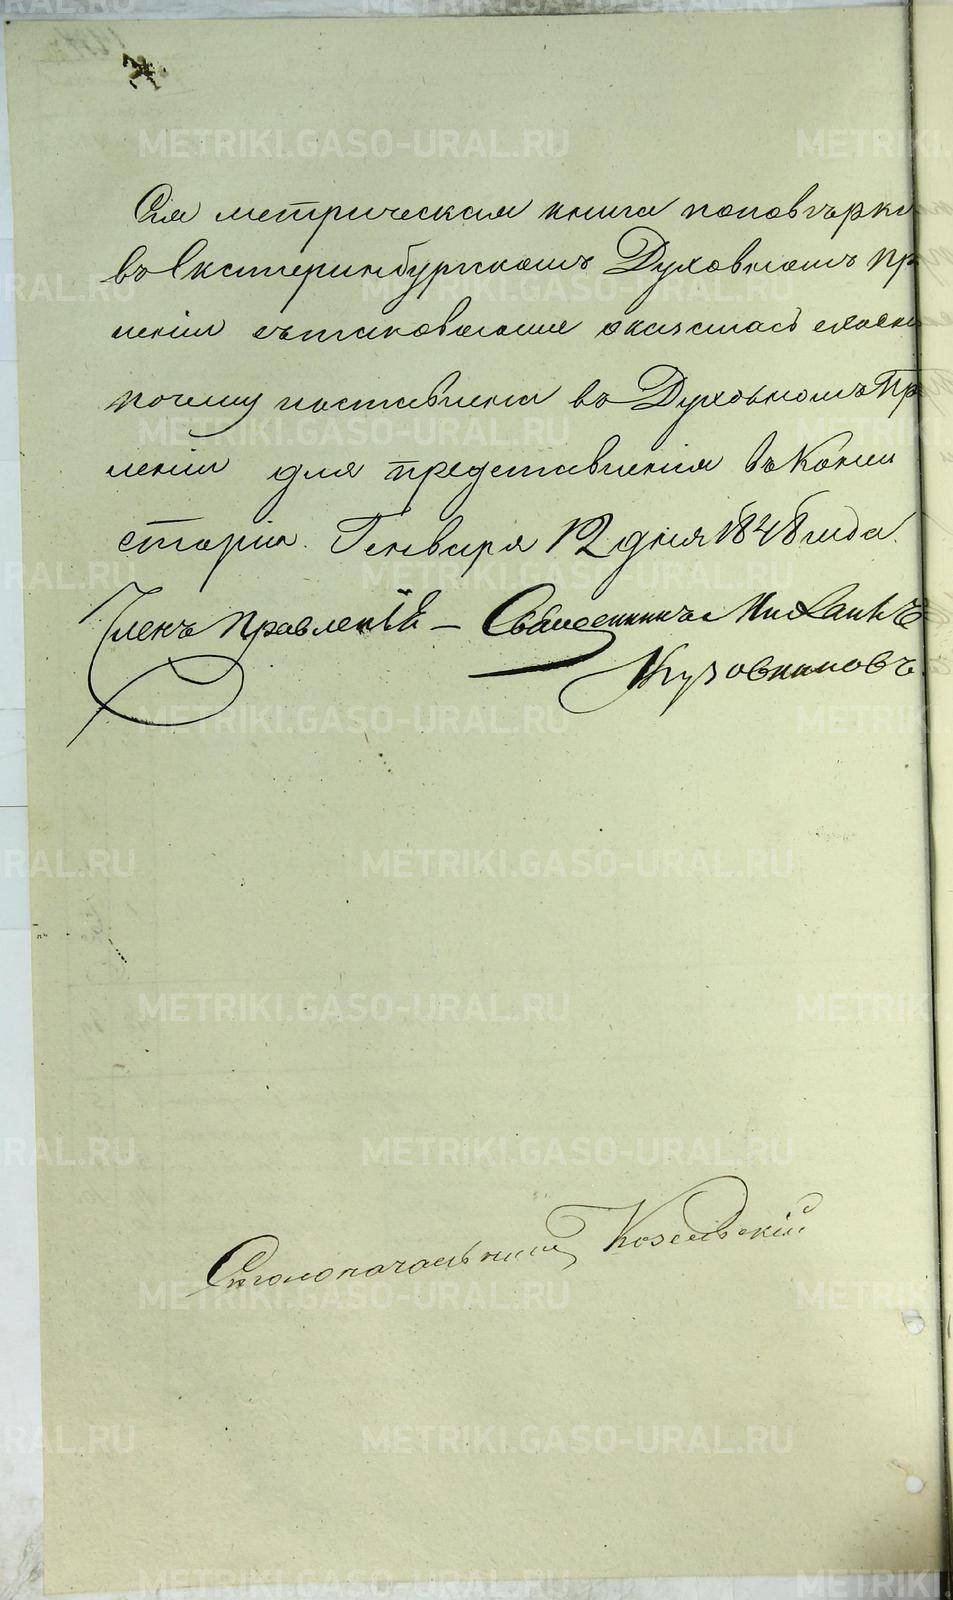 Сія метрическая книга поповѣрки
въ Екатеринбургскомъ Духовномъ Пр
леніи съ таковоюже оказалась сходн
почему поставлена въ Духовномъ Пр
леніи для представленія въ Конси
сторію. Генваря 12 дня 1848 года.
Членъ Правленія – Священникъ Михаилъ
Кузовниковъ
Столоначальникъ Козельскій